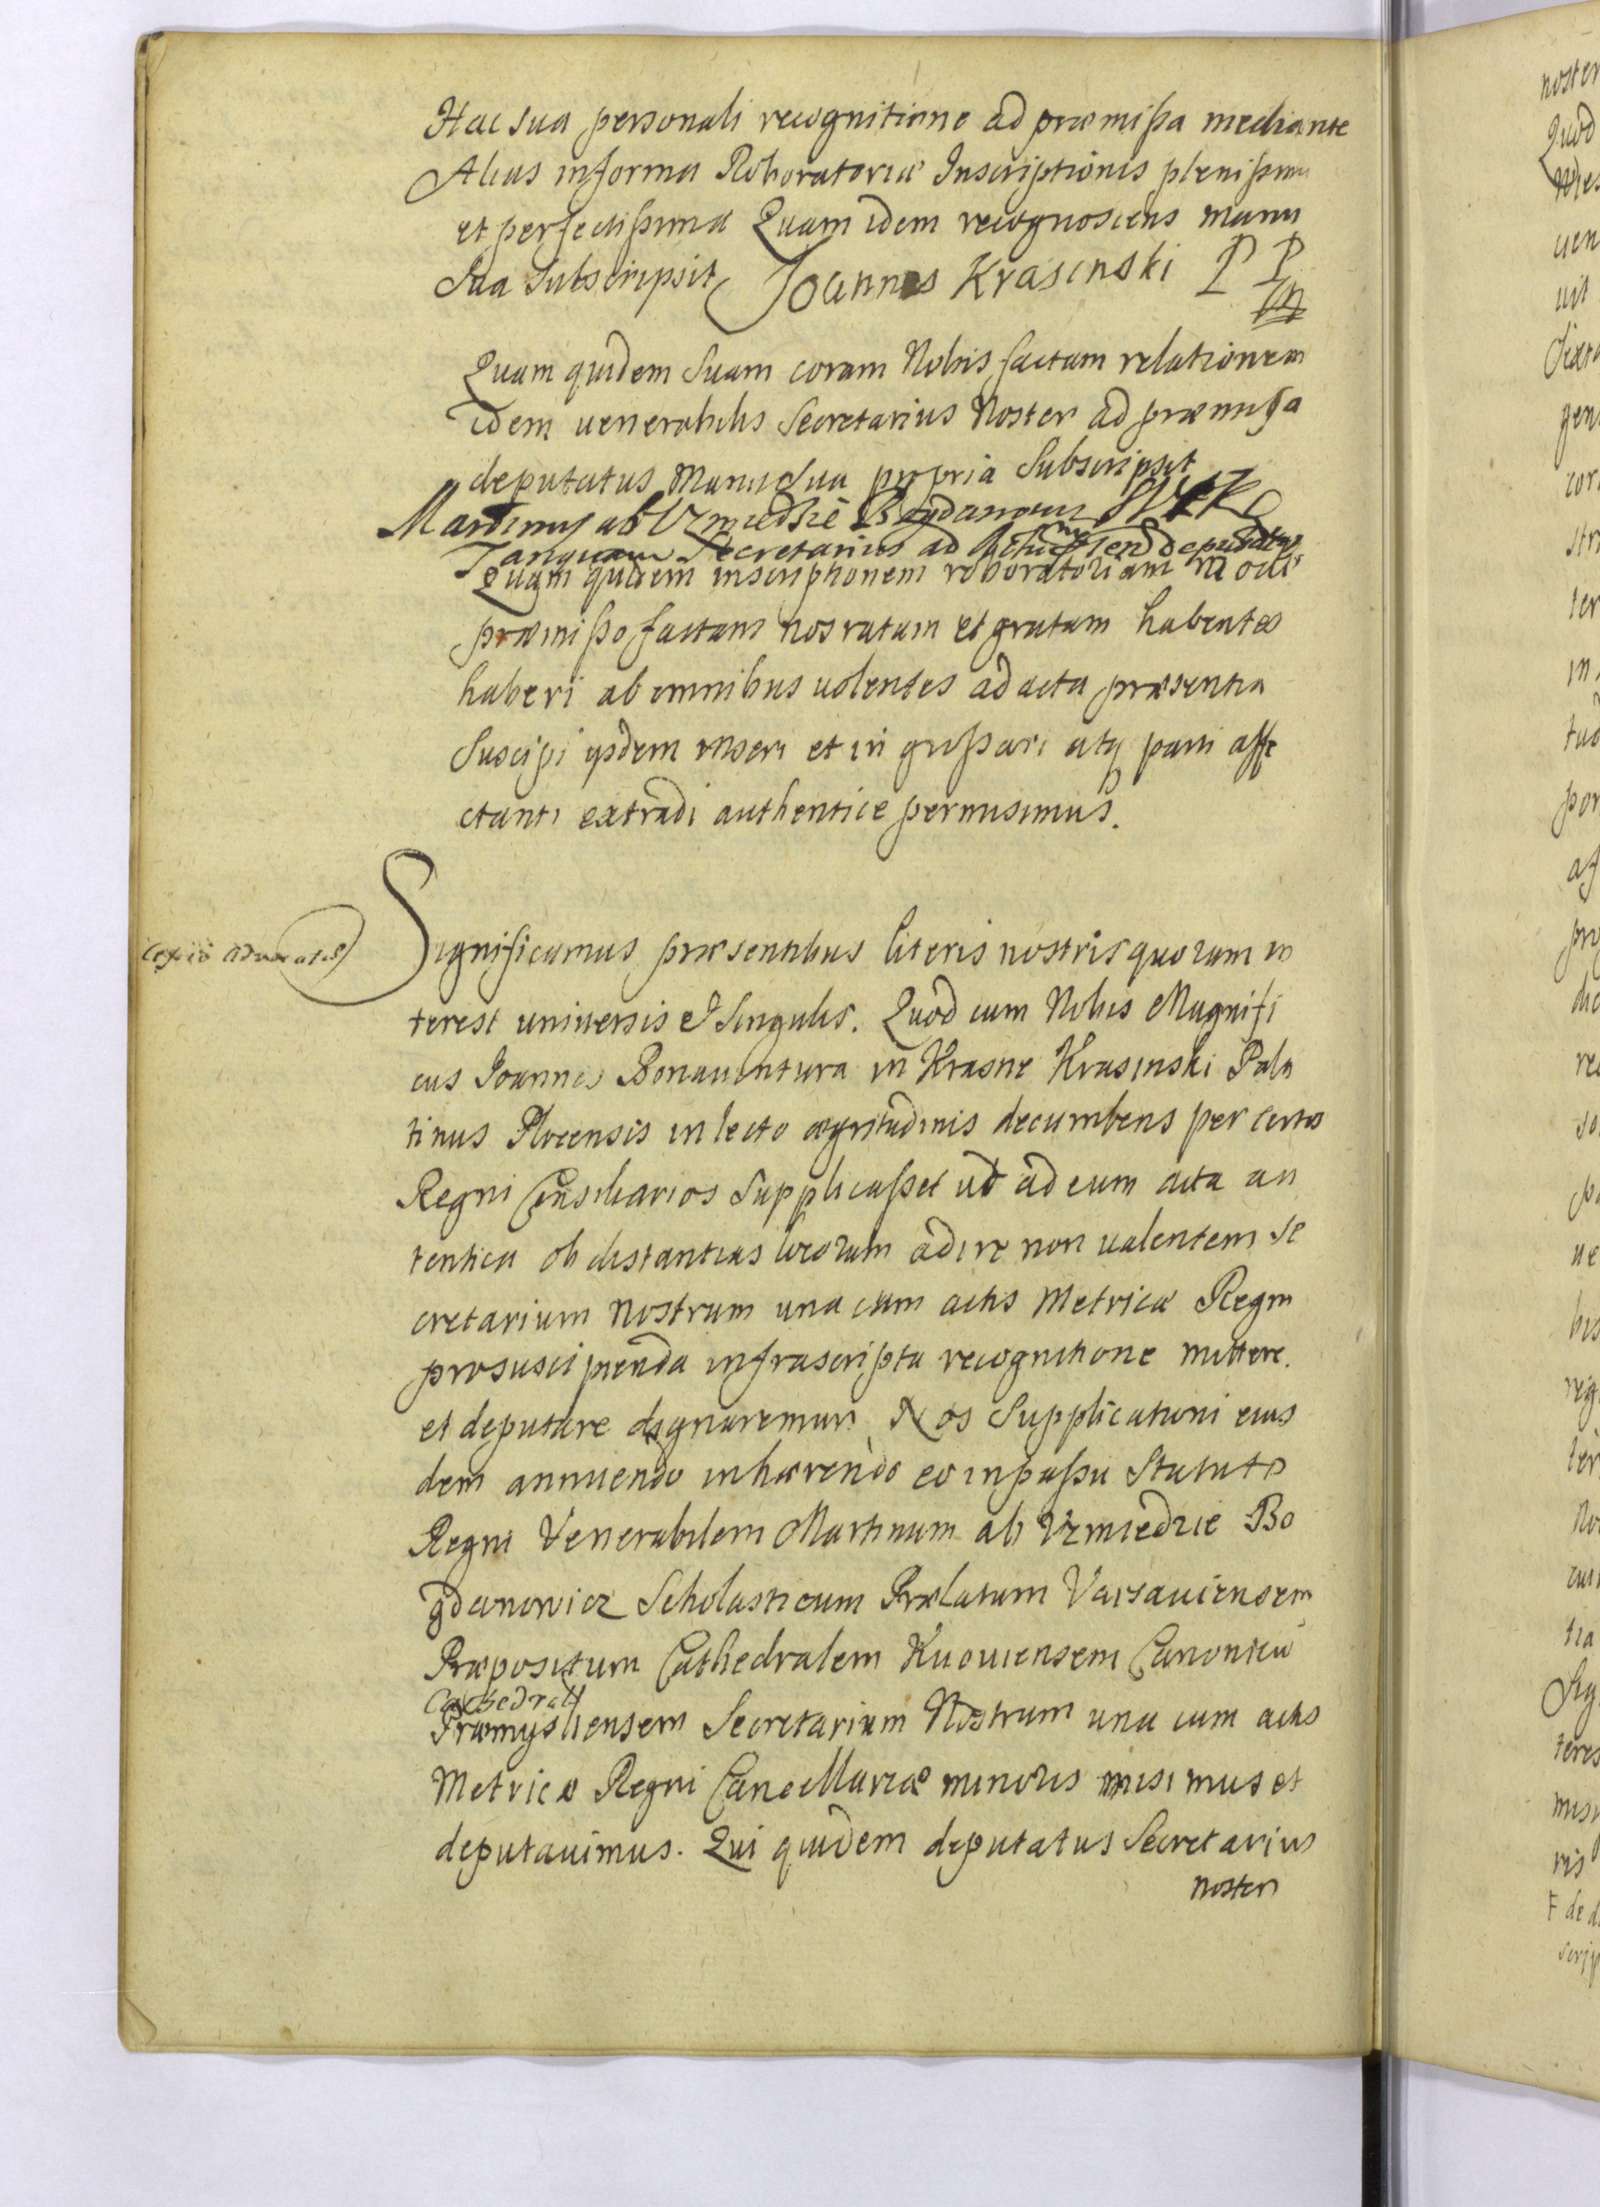 Hac sua personali recognitione ad præmissa mediante
Alias in forma Roboratoriæ Inscriptionis plenissima
et perfectissima Quam idem recognoscens manu
Sua Subscripsit Joannes Krasinski P P
mp
Quam quidem Suam coram Nobis factam relationem
idem uenerabilis Secretarius Noster ad præmissa
deputatus Manu Sua propria Subscripsit
Martinus ab Uzmiedzie Bogdanowicz
Tanquam Secretarius ad deputatus
Quam quidem inscriptionem roboratoriam modo
præmisso factam nos ratam et gratam habentes
haberi ab omnibus uolentes ad acta præsentia
Suscipi ysdem inseri et in grossari atq parti affe
ctanti extradi authentice permisimus.
Cessio aduocatiæ
Significamus præsentibus literis nostris quorum in
terest uniuersis et Singulis. Quod cum Nobis Magnifi
cus Joannes Bonauentura in Krasne Krasinski Pala
tinus Plocensis in lecto ægritudinis decumbens per certos
Regni Consiliarios Supplicasset ut ad eum acta au
tentica ob distantias locorum adire non ualentem Se
cretarium Nostrum una cum actis Metricæ Regni
pro suscipienda infrascripta recognitione mittere
et deputare dignaremur Nos Supplicationi eius
dem annuendo inhærendo eo in passu Statuto
Regni Venerabilem Martinum ab Uzmiedzie Bo
gdanowicz Scholasticum Prælatum Varsauiensem
Præpositum Cathedralem Kijouiensem Canonicū
Cathedralē
Præmysliensem Secretarium Nostrum una cum actis
Metricæ Regni Cancellariæ minoris misimus et
deputauimus. Qui quidem deputatus Secretarius
noster